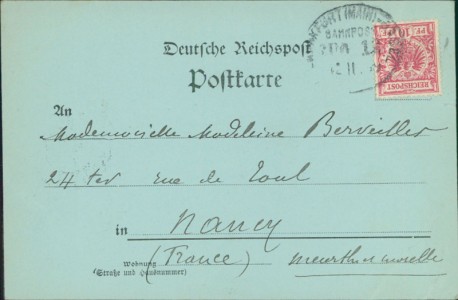 FRANKFURT (MAIN)
BAHNPOST
10 PF 10
REICHSPOST
Deutsche Reichspost
Postkarte
An
Mademoiselle Madeleine Berveiller
24 ter rue de Toul
in Nancy
(France) Meurthe et moselle
Wohnung
(Straße und Hausnummer)